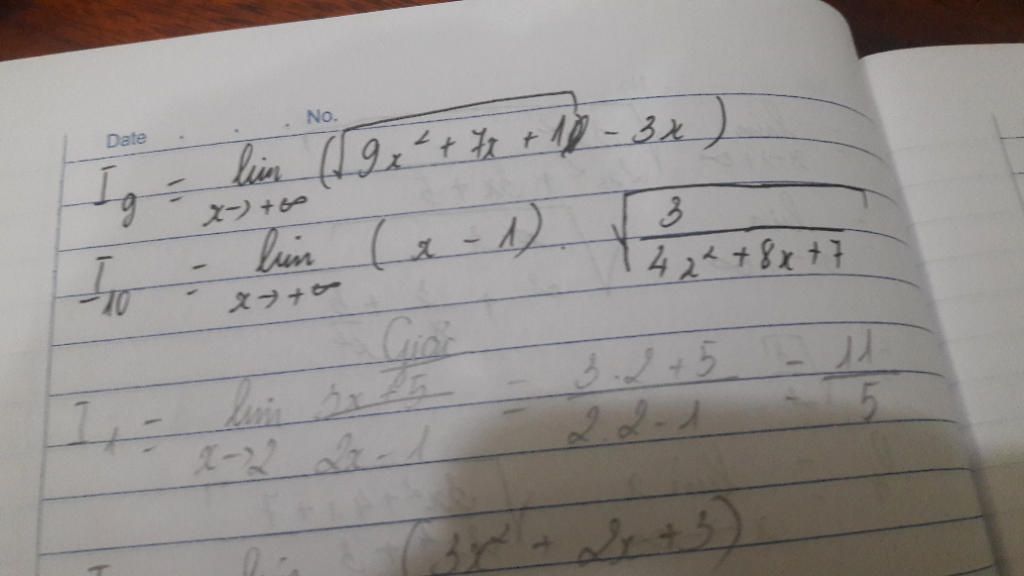 Date No.
I₉ = lim x→+∞ (√(9x² + 7x + 10) - 3x)
I₁₀ = lim x→+∞ (x - 1) . √(3/(4x² + 8x + 7))
Giải
I₁ = lim x→2 (3x + 5)/(2x - 1) = (3.2 + 5)/(2.2 - 1) = 11/5
lim (3x² + 2x + 3)